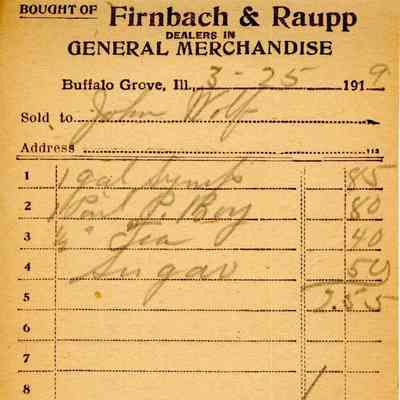 BOUGHT OF Firnbach & Raupp
DEALERS IN
GENERAL MERCHANDISE
Buffalo Grove, Ill., 3-25 1919
Sold to John Wolf
Address 113
1 1 gal Syrup 85
2 1 Pail P. Boy 80
3 ½" Tea 40
4 Sugar 50
5 2.55
6
7
8